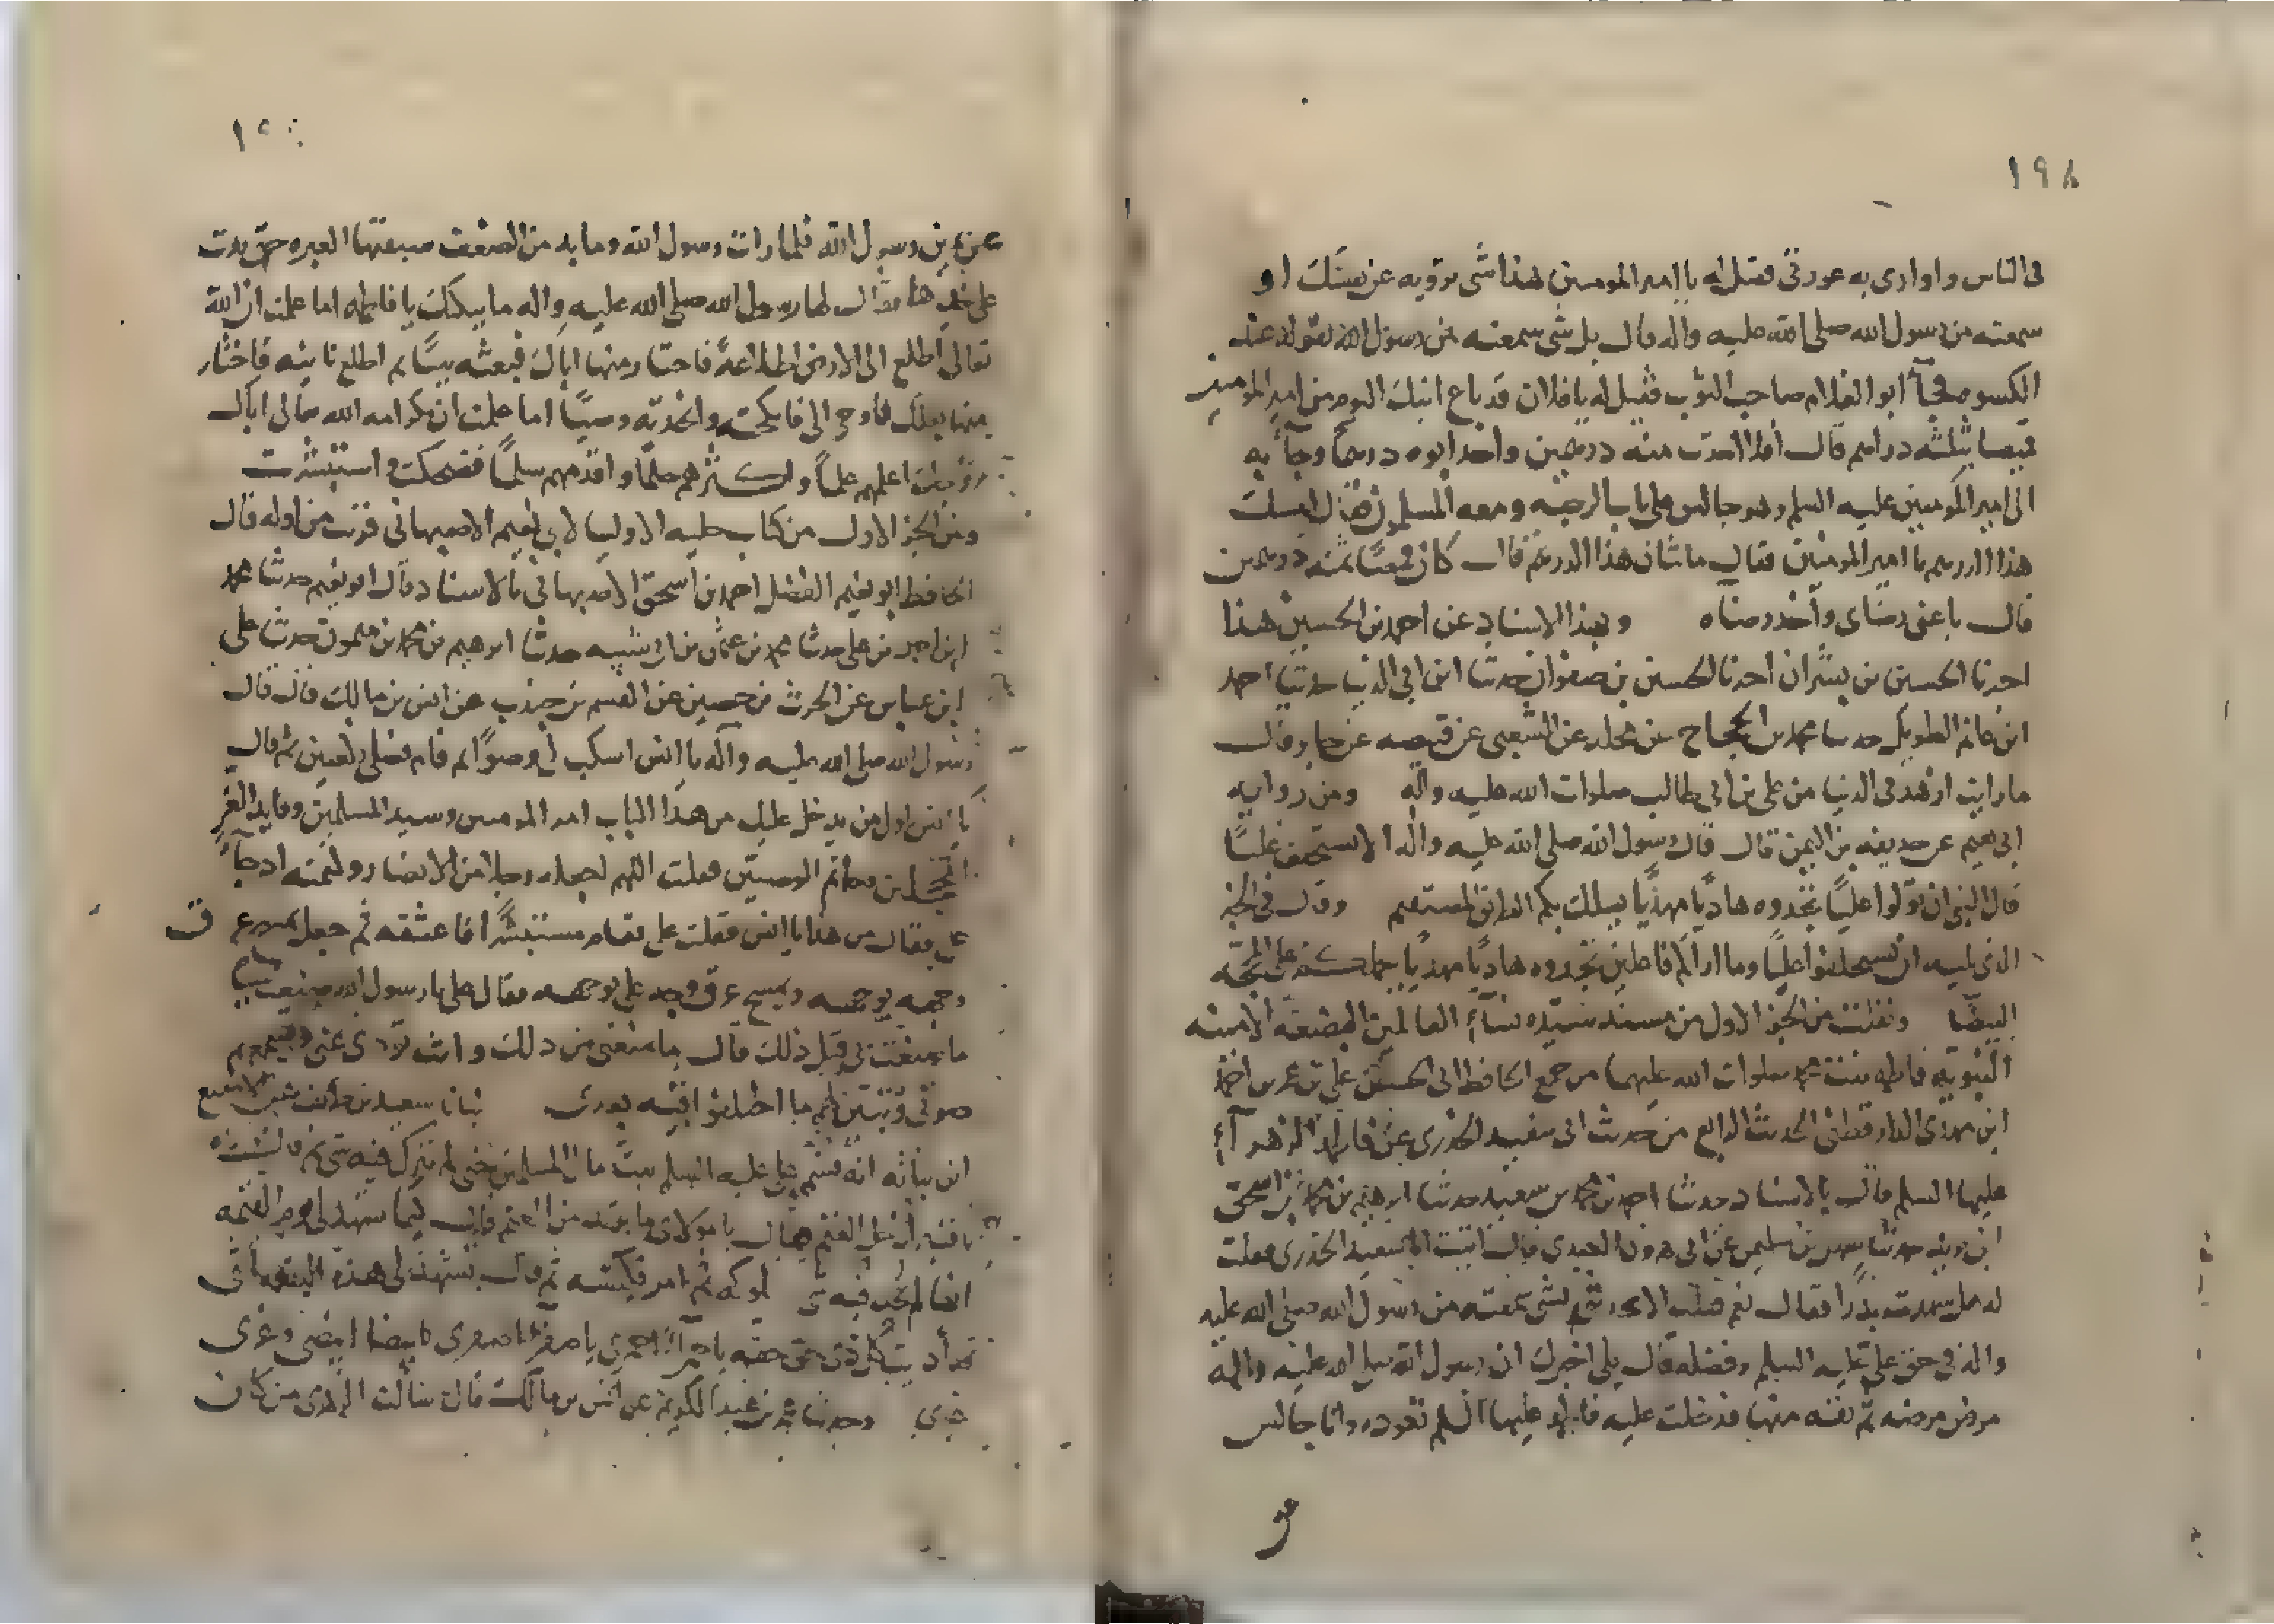 ١٩٨
في الناس واوارى به عورتي فقيل له يا امير المومنين هذا شي ترويه عن نفسك او
سمعته من رسول الله صلى الله عليه واله قال بل شي سمعته من رسول الله يقوله عند
الكسوه فجآ ابو الغلام صاحب الثوب فقيل له يا فلان قد باع ابنك اليوم من امير المومنين
قميصا بثلثه دراهم قال افلا اخذت منه درهمين واخذ ابوه درهما وجآ به
الى امير المومنين عليه السلم وهو جالس على باب الرحبه ومعه المسلمون فقال امسك
هذا الدرهم يا امير المومنين فقال ما شان هذا الدرهم قال كان قميصا ثمنه درهمين
قال باعني رضاى واخذ رضاه وبهذا الاسناد عن احمد بن الحسين هذا
اخبرنا الحسين بن بشران اخبرنا الحسين بن صفوان حدثنا ابن ابي الدنيا حدثنا احمد
ابن حاتم الطويل حدثنا محمد بن الحجاج عن مجلد عن الشعبى عن قبيصه عن جابر قال
ما رايت ازهد في الدنيا من علي بن ابي طالب صلوات الله عليه واله ومن روايه
ابي نعيم عن حذيفه بن اليمن قال قال رسول الله صلى الله عليه واله الا تستخلف عليا
قال النبي ان تولوا عليا تجدوه هاديا مهديا يسلك بكم الطريق المستقيم وقال في الخبر
الذي يليه ان تستخلفوا عليا وما اراكم فاعلين تجدوه هاديا مهديا يحملكم على المحجه
البيضا ونقلت من الجزو الاول من مسند سيده نسآء العالمين البضعه الامينه
النبويه فاطمه بنت محمد صلوات الله عليهما من جمع الحافظ ابي الحسين علي بن عمر بن احمد
ابن مهدى الدارقطني الحديث الرابع من حديث ابي سعيد الخدرى عن فاطمه الزهرآء
عليها السلم قال بالاسناد حدثنا احمد بن محمد بن سعيد حدثنا ابرهيم بن محمد بن اسحق
ابن يزيد حدثنا سهل بن سليمن عن ابي هرون العبدي قال اتيت ابا سعيد الخدرى فقلت
له هل شهدت بدرا فقال نعم فقلت الا تحدثني بشي سمعته من رسول الله صلى الله عليه
واله في حق علي عليه السلم وفضله قال بلى اخبرك ان رسول الله صلى الله عليه واله
مرض مرضه ثم نقه منها فدخلت عليه فاطمه عليها السلم تعوده وانا جالس
عن
عن يمين رسول الله فلما رات رسول الله وما به من الضعف سبقتها العبره حتى بدت
على خدها فقال لها رسول الله صلى الله عليه واله ما يبكيك يا فاطمه اما علمت ان الله
تعالى اطلع الى الارض اطلاعة فاختار منها اباك فبعثه نبيا ثم اطلع ثانيه فاختار
منها بعلك فاوحى الى فانكحته واتخذته وصيا اما علمت ان بكرامه الله تعالى اياك
زوجك اعلمهم علما واكثرهم حلما واقدمهم سلما فضحكت واستبشرت
ومن الجز الاول من كتاب حليه الاوليا لابي نعيم الاصبهاني قرب من اوله قال
الحافظ ابو نعيم الفضل احمد بن اسحق الاصبهاني بالاسناد قال ابو نعيم حدثنا محمد
ابن احمد بن علي حدثنا محمد بن عثمن بن ابي شيبه حدثنا ابرهيم بن محمد بن ميمون حدثنا علي
ابن عباس عن الحرث بن حصين عن القسم بن جندب عن انس بن مالك قال قال
رسول الله صلى الله عليه واله يا انس اسكب لي وضوا ثم قام فصلى ركعتين ثم قال
يا انس اول من يدخل عليك من هذا الباب امير المومنين وسيد المسلمين وقايد الغر
المحجلين وخاتم الوصيين فقلت اللهم اجعله رجلا من الانصار وكتمته اذ جآ
علي فقال من هذا يا انس فقلت علي فقام مستبشرا فاعتنقه ثم جعل يمسح عرق
وجهه بوجهه ويمسح عرق وجه علي بوجهه فقال علي يا رسول الله صنعت شيا
ما صنعت بي قبل ذلك قال ما يمنعني من ذلك وانت تؤدى عني وتسمعهم
صوتي وتبين لهم ما اختلفوا فيه بعدى
ابن نباته انه قسم علي عليه السلم بيت مال المسلمين حتى لم يترك فيه شي ثم قال
انها لم يجد فيه شي امر فكنسه ثم قال تشهد لي هذه البقعه اني
قد أديت كل ذى حق حقه يا حمرآ احمري يا صفرا اصفري يا بيضا ابيضى وغرى
غيرى وحدثنا محمد بن عبد الكريم عن انس بن مالك قال سالت الزهرى من كان